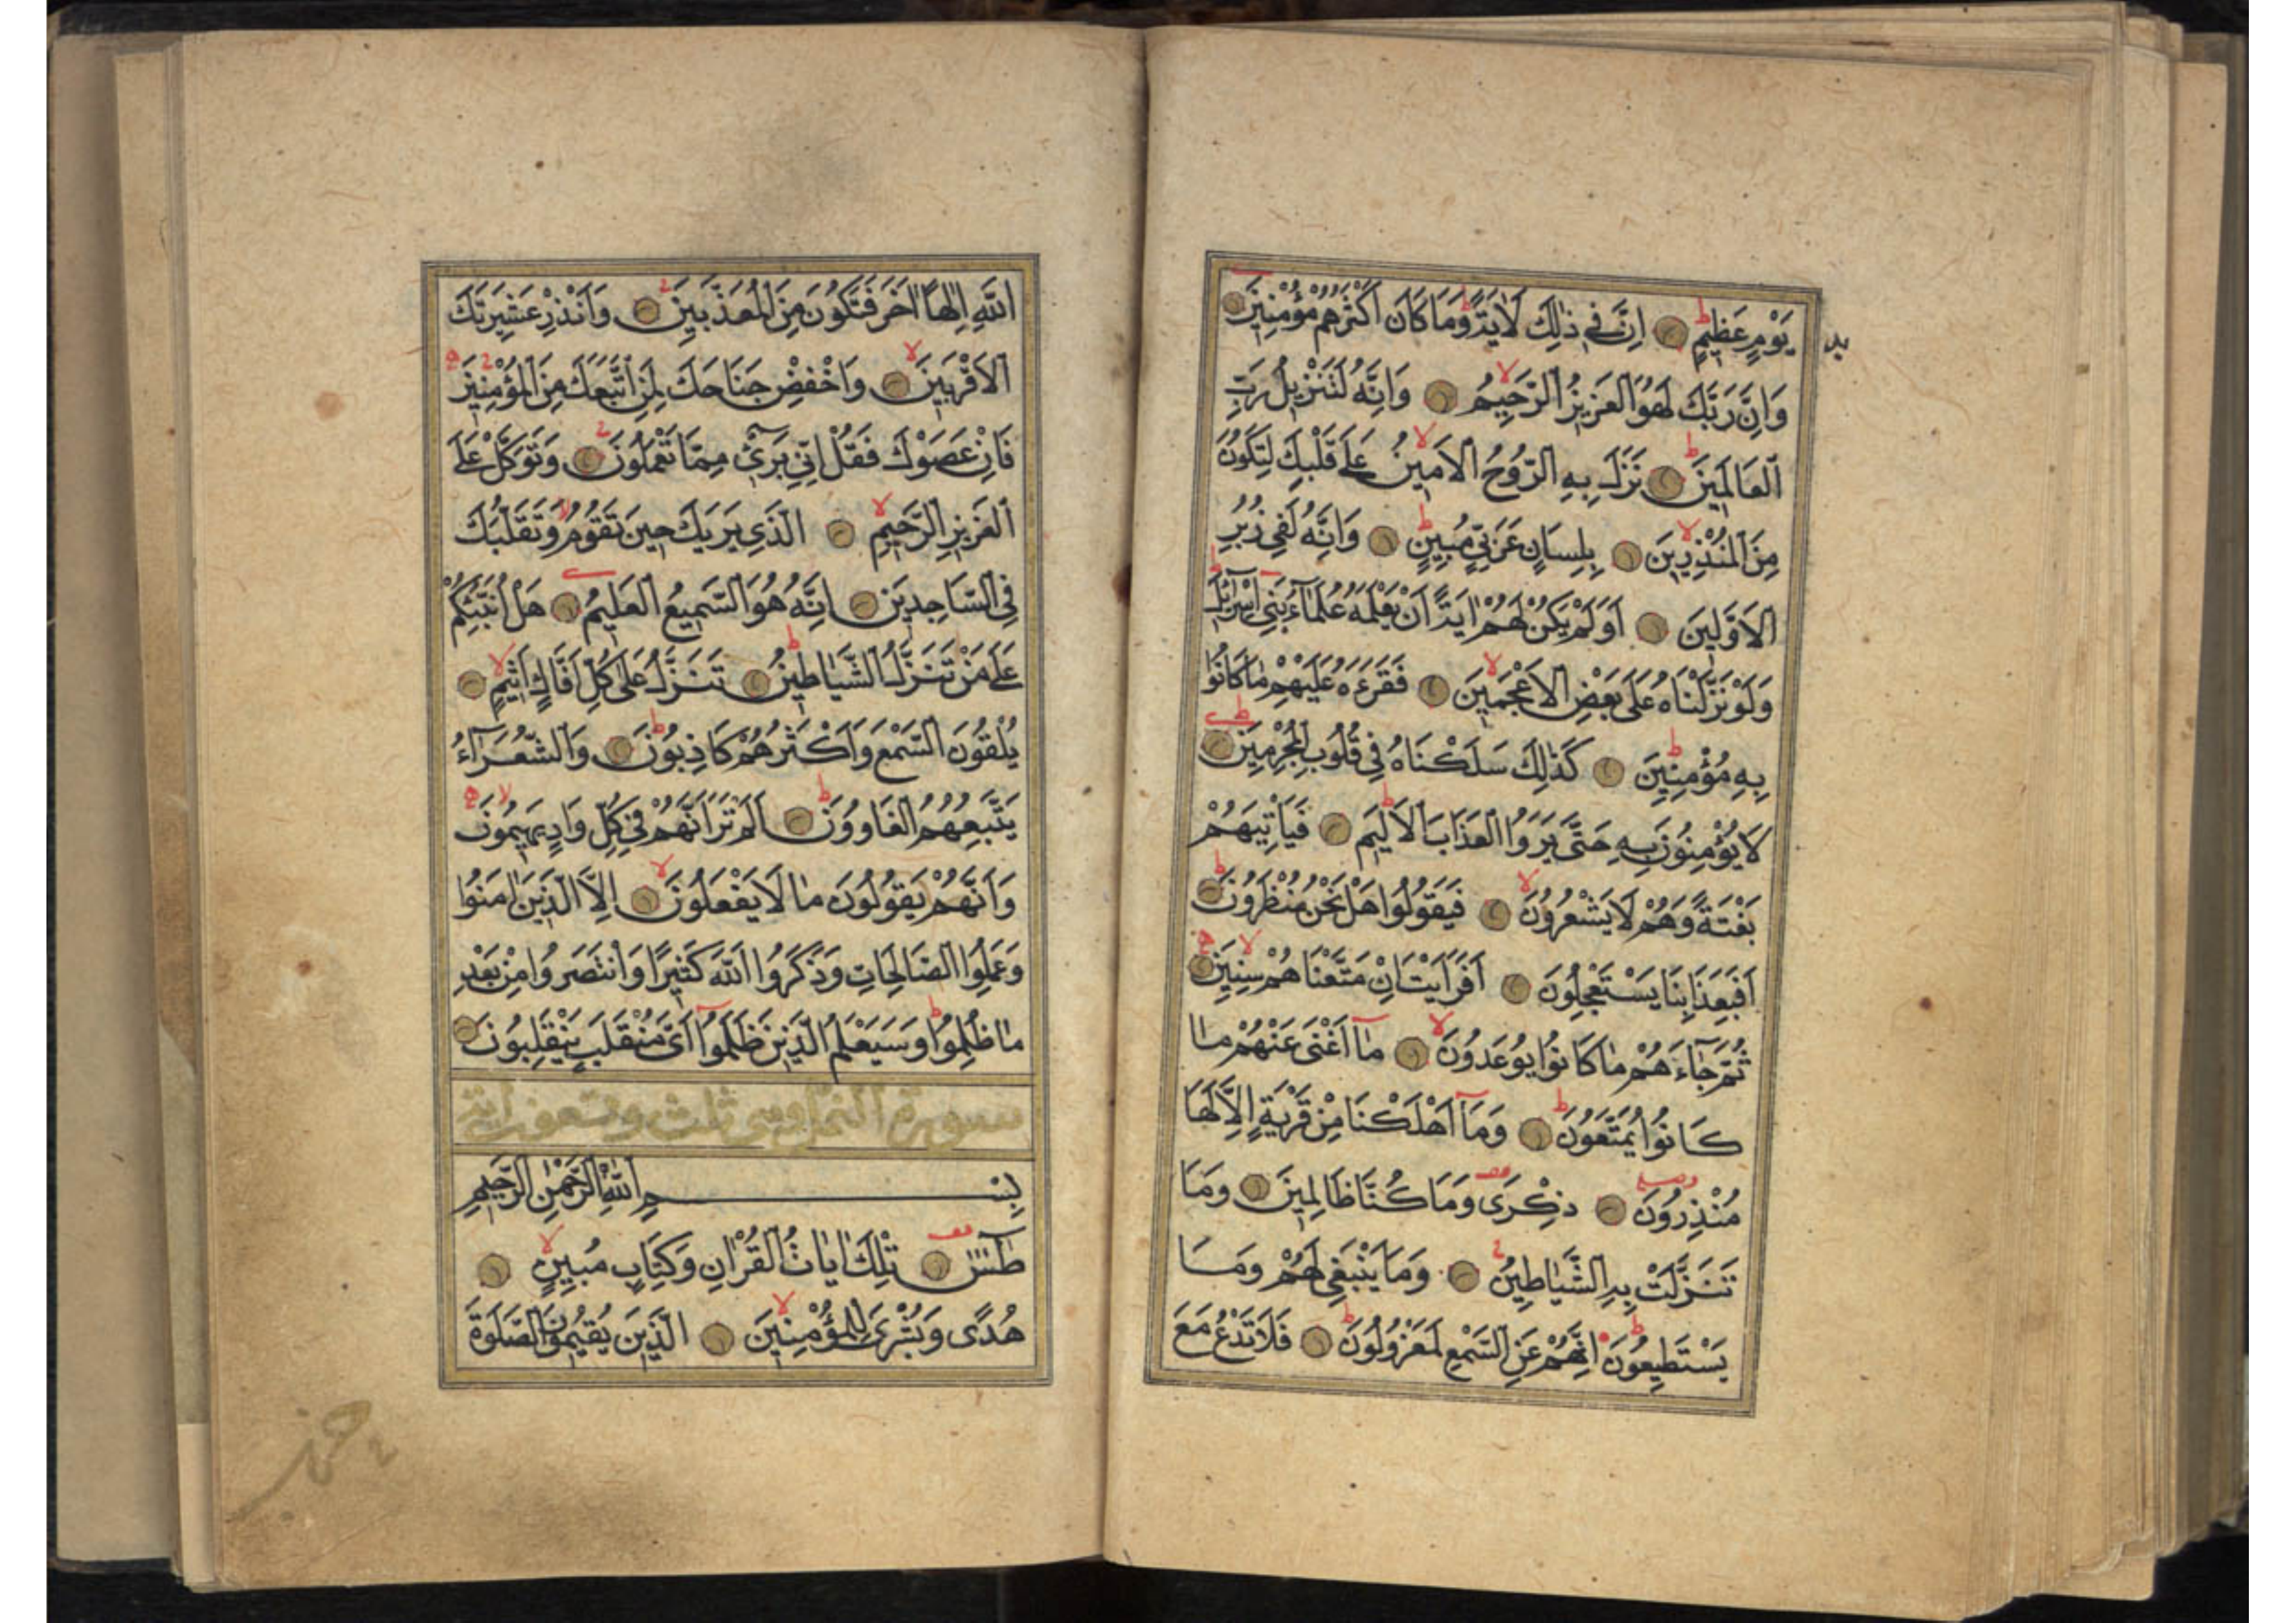 يَوْمٍ عَظِيمٍ اِنَّ فِي ذٰلِكَ لَاٰيَةً وَمَا كَانَ اَكْثَرُهُمْ مُؤْمِنِينَ
وَاِنَّ رَبَّكَ لَهُوَ الْعَزِيزُ الرَّحِيمُ وَاِنَّهُ لَتَنْزِيلُ رَبِّ
الْعَالَمِينَ نَزَلَ بِهِ الرُّوحُ الْاَمِينُ عَلٰى قَلْبِكَ لِتَكُونَ
مِنَ الْمُنْذِرِينَ بِلِسَانٍ عَرَبِيٍّ مُبِينٍ وَاِنَّهُ لَفِي زُبُرِ
الْاَوَّلِينَ اَوَلَمْ يَكُنْ لَهُمْ اٰيَةً اَنْ يَعْلَمَهُ عُلَمَاءُ بَنِي اِسْرَائِلَ
وَلَوْ نَزَّلْنَاهُ عَلٰى بَعْضِ الْاَعْجَمِينَ فَقَرَءَهُ عَلَيْهِمْ مَا كَانُوا
بِهِ مُؤْمِنِينَ كَذٰلِكَ سَلَكْنَاهُ فِي قُلُوبِ الْمُجْرِمِينَ
لَا يُؤْمِنُونَ بِهِ حَتّٰى يَرَوُا الْعَذَابَ الْاَلِيمَ فَيَأْتِيَهُمْ
بَغْتَةً وَهُمْ لَا يَشْعُرُونَ فَيَقُولُوا هَلْ نَحْنُ مُنْظَرُونَ
اَفَبِعَذَابِنَا يَسْتَعْجِلُونَ اَفَرَاَيْتَ اِنْ مَتَّعْنَاهُمْ سِنِينَ
ثُمَّ جَاءَهُمْ مَا كَانُوا يُوعَدُونَ مَا اَغْنٰى عَنْهُمْ مَا
كَانُوا يُمَتَّعُونَ وَمَا اَهْلَكْنَا مِنْ قَرْيَةٍ اِلَّا لَهَا
مُنْذِرُونَ ذِكْرٰى وَمَا كُنَّا ظَالِمِينَ وَمَا
تَنَزَّلَتْ بِهِ الشَّيَاطِينُ وَمَا يَنْبَغِي لَهُمْ وَمَا
يَسْتَطِيعُونَ اِنَّهُمْ عَنِ السَّمْعِ لَمَعْزُولُونَ فَلَا تَدْعُ مَعَ
اللّٰهِ اِلٰهًا اٰخَرَ فَتَكُونَ مِنَ الْمُعَذَّبِينَ وَاَنْذِرْ عَشِيرَتَكَ
الْاَقْرَبِينَ وَاخْفِضْ جَنَاحَكَ لِمَنِ اتَّبَعَكَ مِنَ الْمُؤْمِنِينَ
فَاِنْ عَصَوْكَ فَقُلْ اِنِّي بَرِيءٌ مِمَّا تَعْمَلُونَ وَتَوَكَّلْ عَلَى
الْعَزِيزِ الرَّحِيمِ الَّذِي يَرٰيكَ حِينَ تَقُومُ وَتَقَلُّبَكَ
فِي السَّاجِدِينَ اِنَّهُ هُوَ السَّمِيعُ الْعَلِيمُ هَلْ اُنَبِّئُكُمْ
عَلٰى مَنْ تَنَزَّلُ الشَّيَاطِينُ تَنَزَّلُ عَلٰى كُلِّ اَفَّاكٍ اَثِيمٍ
يُلْقُونَ السَّمْعَ وَاَكْثَرُهُمْ كَاذِبُونَ وَالشُّعَرَاءُ
يَتَّبِعُهُمُ الْغَاوُونَ اَلَمْ تَرَ اَنَّهُمْ فِي كُلِّ وَادٍ يَهِيمُونَ
وَاَنَّهُمْ يَقُولُونَ مَا لَا يَفْعَلُونَ اِلَّا الَّذِينَ اٰمَنُوا
وَعَمِلُوا الصَّالِحَاتِ وَذَكَرُوا اللّٰهَ كَثِيرًا وَانْتَصَرُوا مِنْ بَعْدِ
مَا ظُلِمُوا وَسَيَعْلَمُ الَّذِينَ ظَلَمُوا اَيَّ مُنْقَلَبٍ يَنْقَلِبُونَ
سورة النمل وهي ثلث وتسعون اية
بِسْمِ اللّٰهِ الرَّحْمٰنِ الرَّحِيمِ
طٰسٓ تِلْكَ اٰيَاتُ الْقُرْاٰنِ وَكِتَابٍ مُبِينٍ
هُدًى وَبُشْرٰى لِلْمُؤْمِنِينَ الَّذِينَ يُقِيمُونَ الصَّلٰوةَ